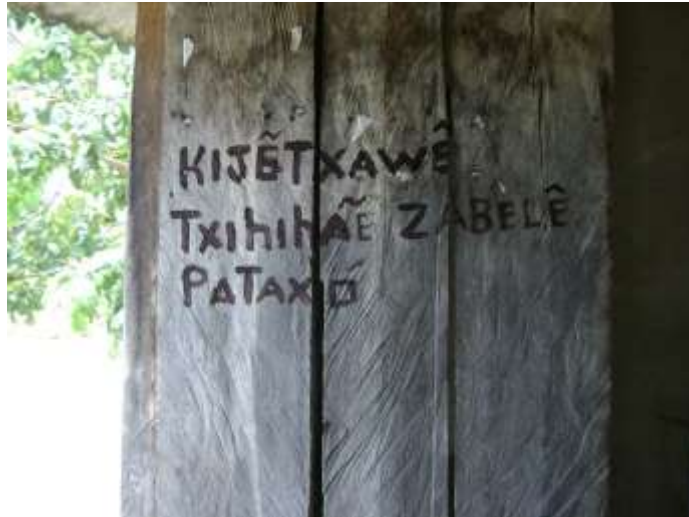 KIJẼTXAWÊ
TxihihÃE ZABELÊ
PATAXÓ